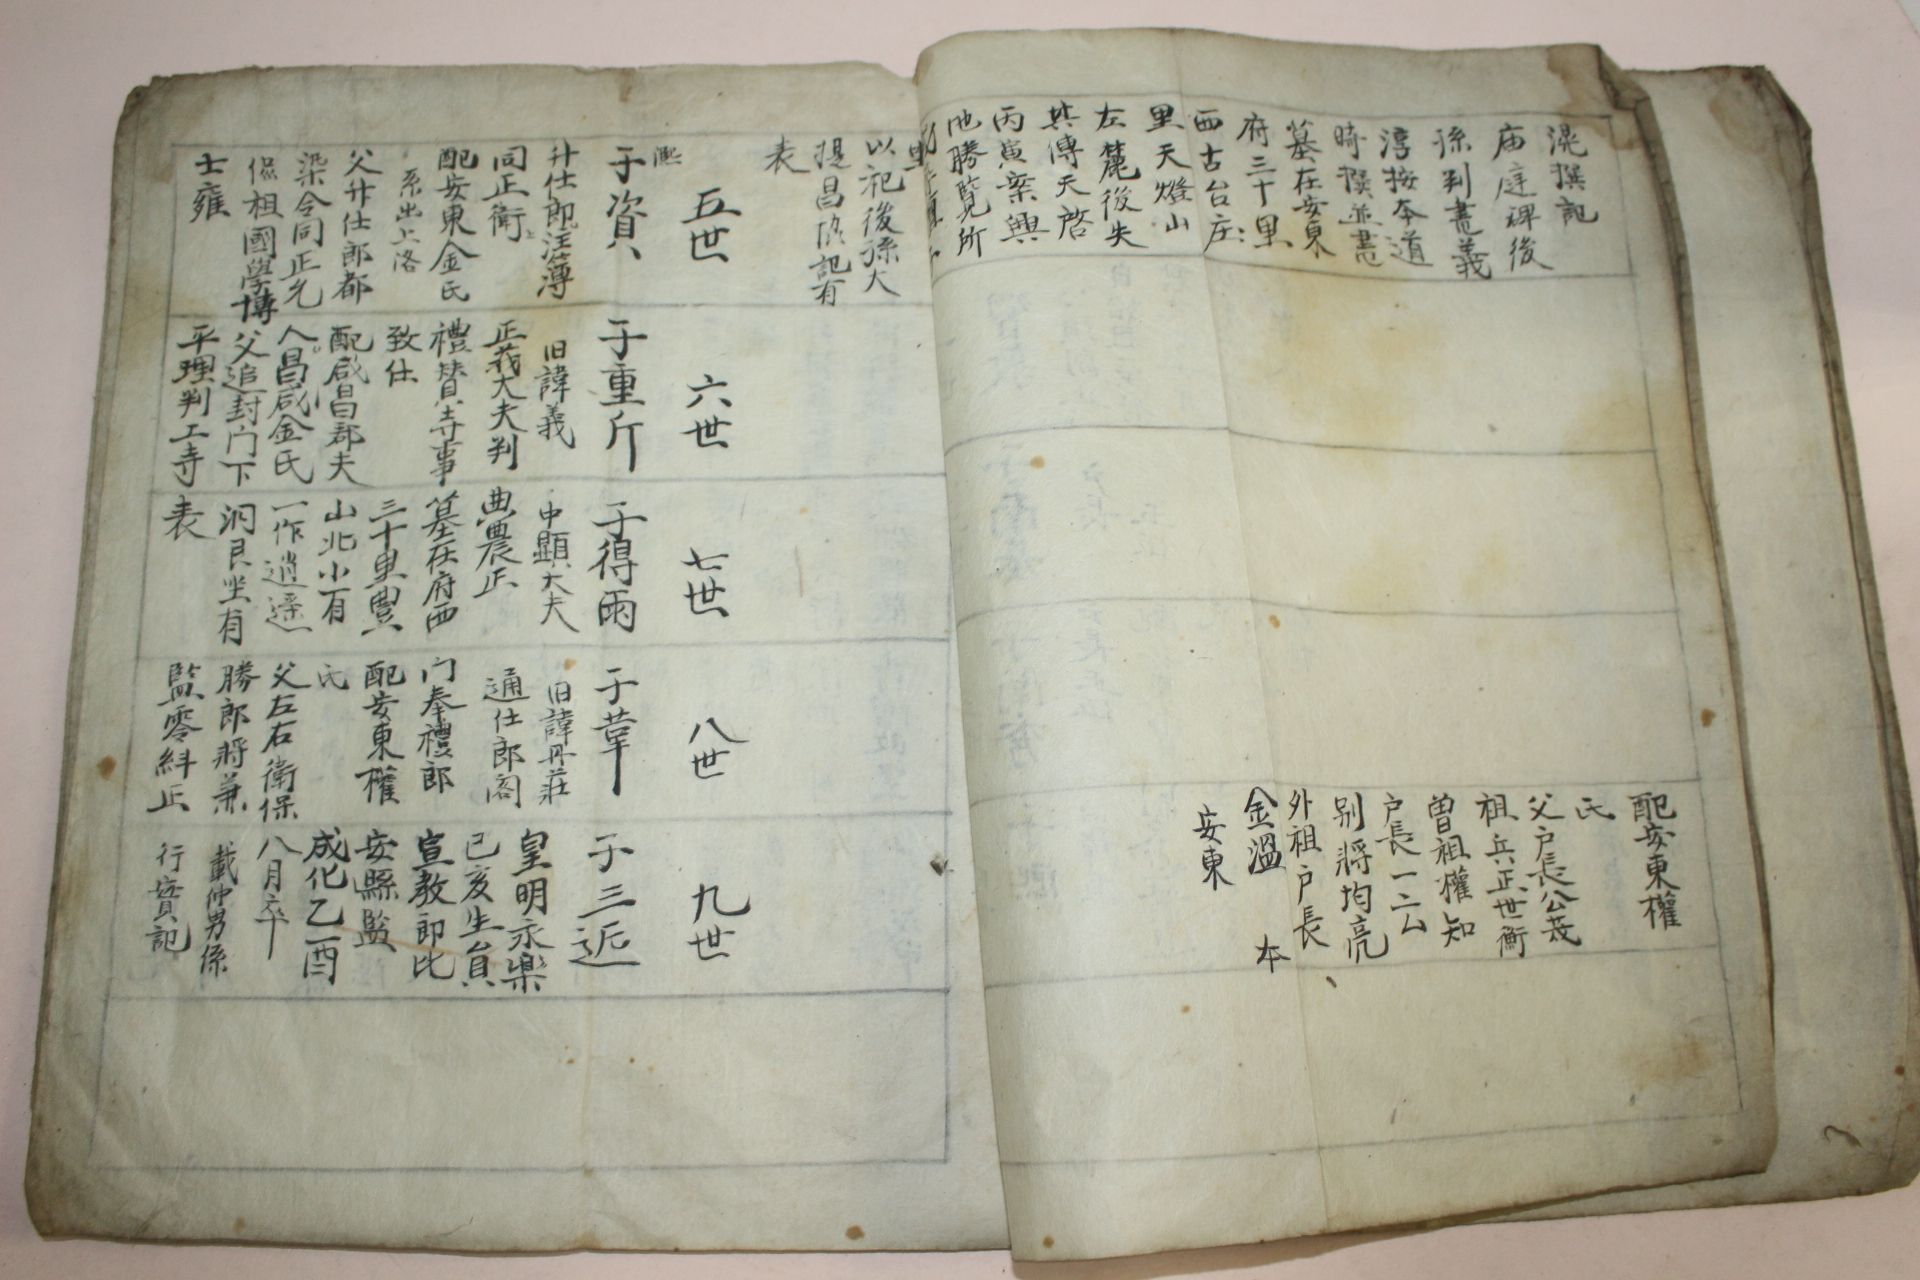 滉撰記
庙庭碑後
孫判書義
淳按本道
時撰並書
墓在安東
府三十里
西古台庄
里天燈山
左麓後失
其傳天啓
丙寅楽興
地勝覽所
以祀後孫大
提昌洛記有
表
配安東權
氏
父户長公茂
祖兵正世衡
曽祖權知
户長一二厶
别將均亮
外祖户長
金溫 本
安東
五世
熙
子資
升仕郎注簿
同正衛
配安東金氏
系出上洛
父升仕郎都
染令同正允
偘祖國學博
士雍
六世
子重斤
旧諱義
正義大夫判
禮賛寺事
致仕
配咸昌郡夫
人昌咸金氏
父追封门下
平理判工寺
七世
子得雨
中顯大夫
典農正
墓在府西
三十里興
山北小有
一作逍遥
洞艮坐有
表
八世
子葦
旧諱丹莊
通仕郎阁
门奉禮郎
配安東權
氏
父左右衛保
勝郎將兼
監零糾正
九世
子三近
皇明永樂
己亥生貟
宣教郎比
安縣監
成化乙酉
八月卒
載仲男係
行實記